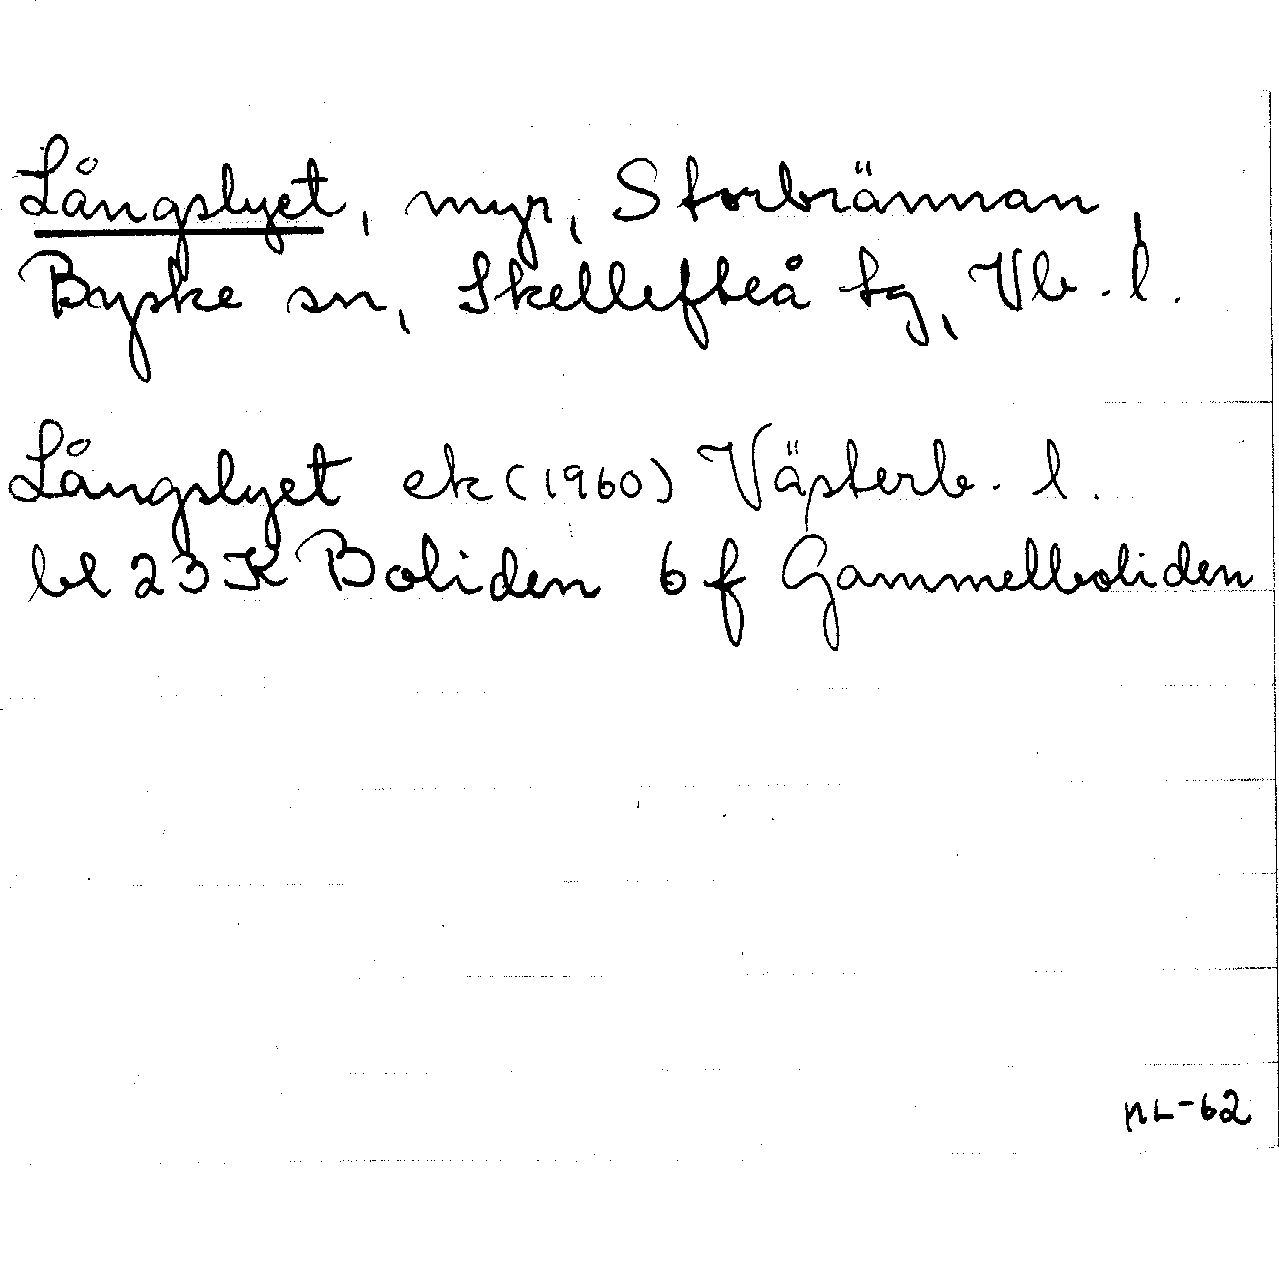 Långslyet, myr, Storbrännan,
Byske sn, Skellefteå tg, Vb. l.
Långslyet ek (1960) Västerb. l.
bl 23 K Boliden 6 f Gammelboliden